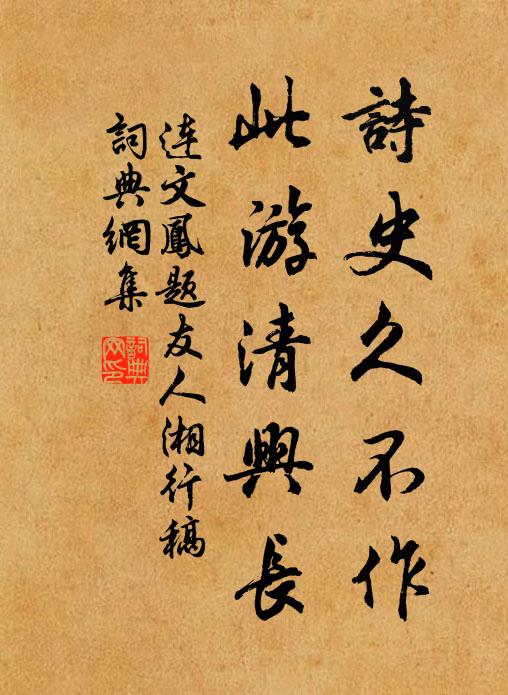 詩史久不作
此游清興長
連文鳳題友人湘行稿
詞典網集
詞典
网印